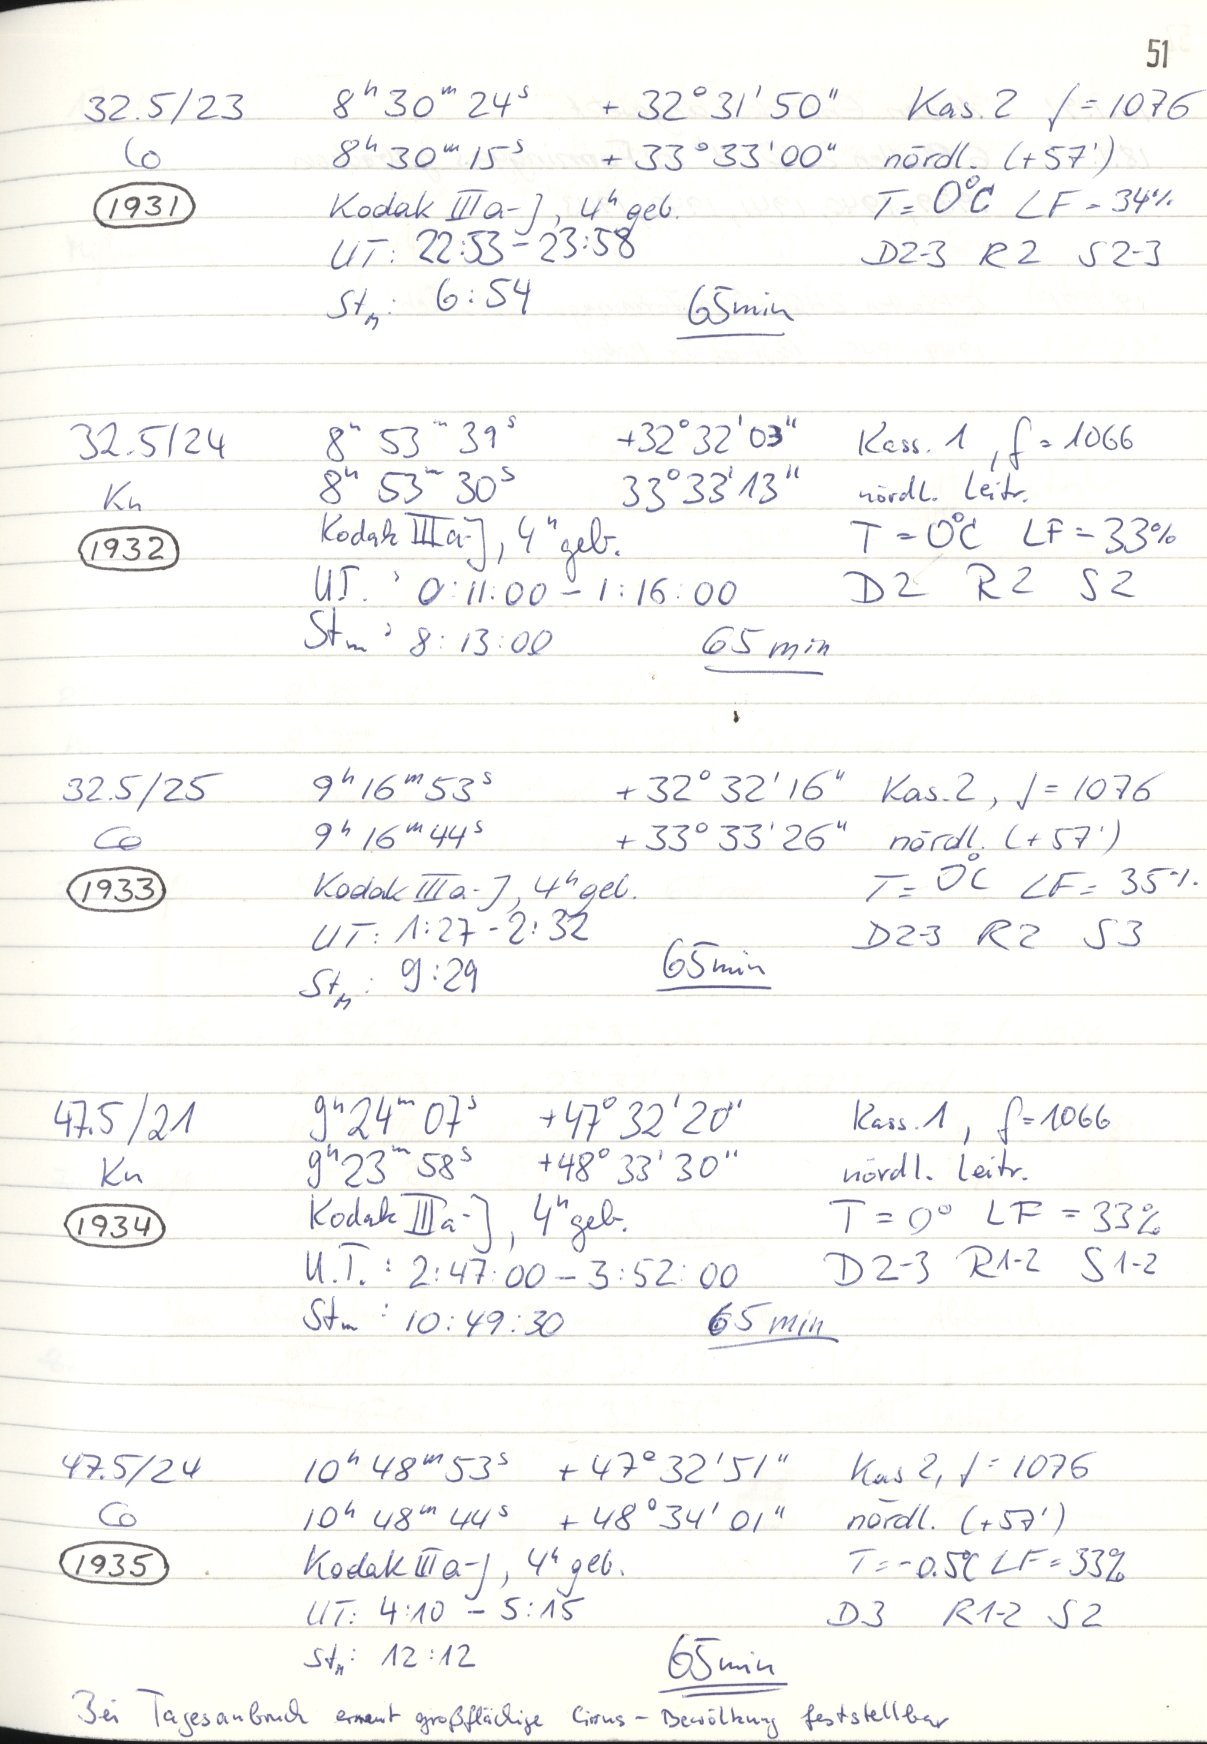 51
32.5/23 8ʰ 30ᵐ 24ˢ + 32° 31' 50" Kas. 2 f = 1076
Co 8ʰ 30ᵐ 15ˢ + 33° 33' 00" nördl. (+57')
1931 Kodak IIIa-J, 4ʰ geb. T = 0°C LF = 34%
UT: 22:53 - 23:58 D2-3 R2 S2-3
Stₘ: 6:54 65min
32.5/24 8ʰ 53ᵐ 39ˢ +32° 32' 03" Kass. 1, f = 1066
Kn 8ʰ 53ᵐ 30ˢ 33° 33' 13" nördl. Leitr.
1932 Kodak IIIa-J, 4ʰ geb. T = 0°C LF = 33%
U.T.: 0:11:00 - 1:16:00 D2 R2 S2
Stₘ: 8:13:00 65 min
32.5/25 9ʰ 16ᵐ 53ˢ + 32° 32' 16" Kas. 2, f = 1076
Co 9ʰ 16ᵐ 44ˢ + 33° 33' 26" nördl. (+57')
1933 Kodak IIIa-J, 4ʰ geb. T = 0°C LF = 35%
UT: 1:27 - 2:32 D2-3 R2 S3
Stₘ: 9:29 65min
47.5/21 9ʰ 24ᵐ 07ˢ +47° 32' 20" Kass. 1, f = 1066
Kn 9ʰ 23ᵐ 58ˢ +48° 33' 30" nördl. Leitr.
1934 Kodak IIIa-J, 4ʰ geb. T = 0° LF = 33%
U.T.: 2:47:00 - 3:52:00 D2-3 R1-2 S1-2
Stₘ: 10:49:30 65 min
47.5/24 10ʰ 48ᵐ 53ˢ + 47° 32' 51" Kas 2, f = 1076
Co 10ʰ 48ᵐ 44ˢ + 48° 34' 01" nördl. (+57')
1935 Kodak IIIa-J, 4ʰ geb. T = -0.5°C LF = 33%
UT: 4:10 - 5:15 D3 R1-2 S2
Stₘ: 12:12 65min
Bei Tagesanbruch erneut großflächige Cirrus-Bewölkung feststellbar